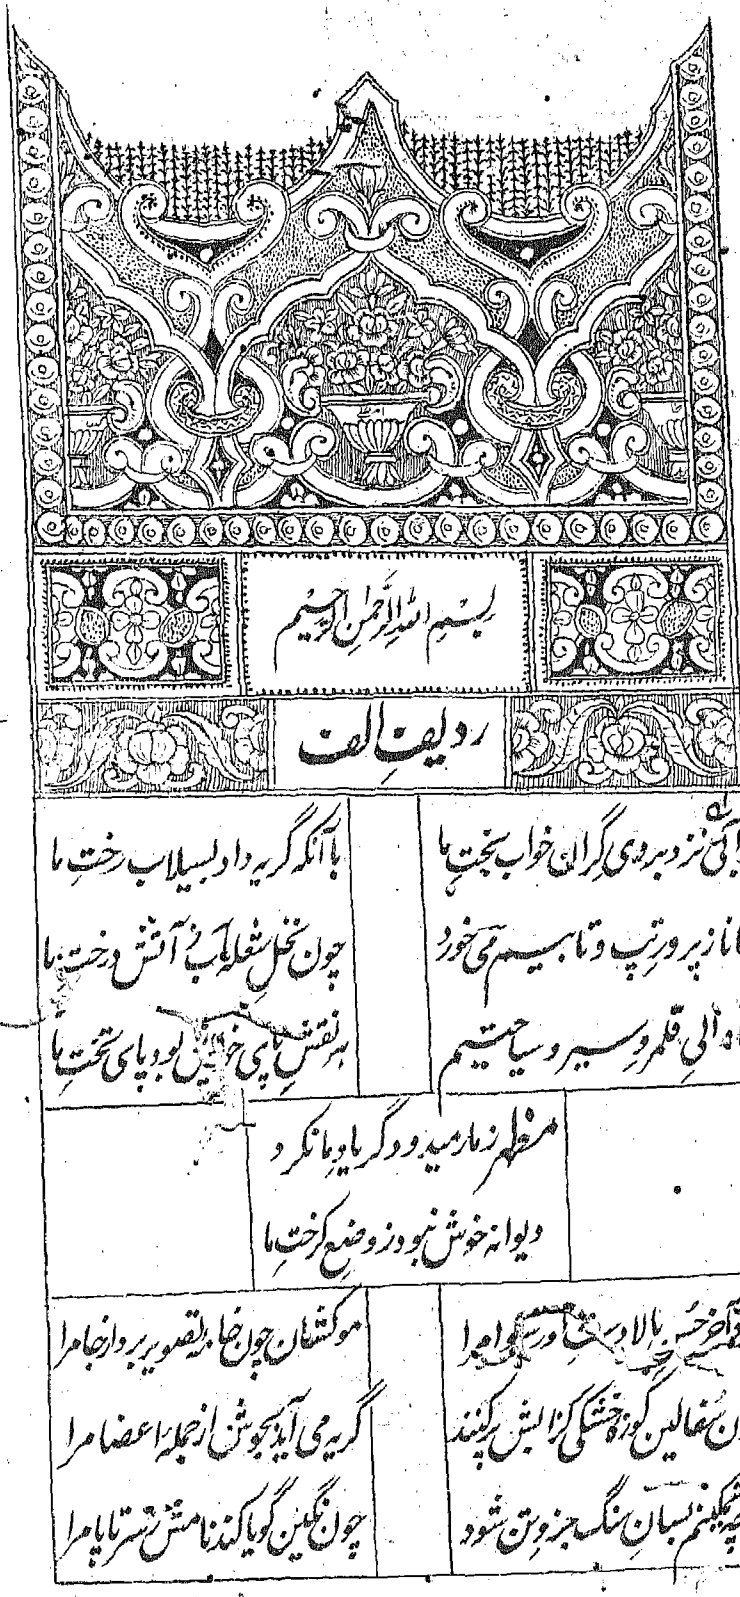 بسم الله الرحمن الرحیم
ردیف الف
نزد بروی گران خواب بخت ما
با آنکه گریه داد بسیلاب رخت ما
ناز پرور تپ و تابیم می خورد
چون نخل شعله آب ز آتش درخت ما
والی قلمرو سیر و سیاحتیم
هر نقش پای بود پای تخت ما
مظهر ز ما رمید و دگر یاد ما نکرد
دیوانه خوش نبود ز وضع کرخت ما
آخر حسن بالادست
موکشان چون خامه تصویر برد از جا مرا
سفالین کوزه خشکی کز آبش پر کنند
گریه می آید بجوش از جمله اعضا مرا
بسان سنگ جزو تن شود
چون نگین گویا کند نامش ز سر تا پا مرا